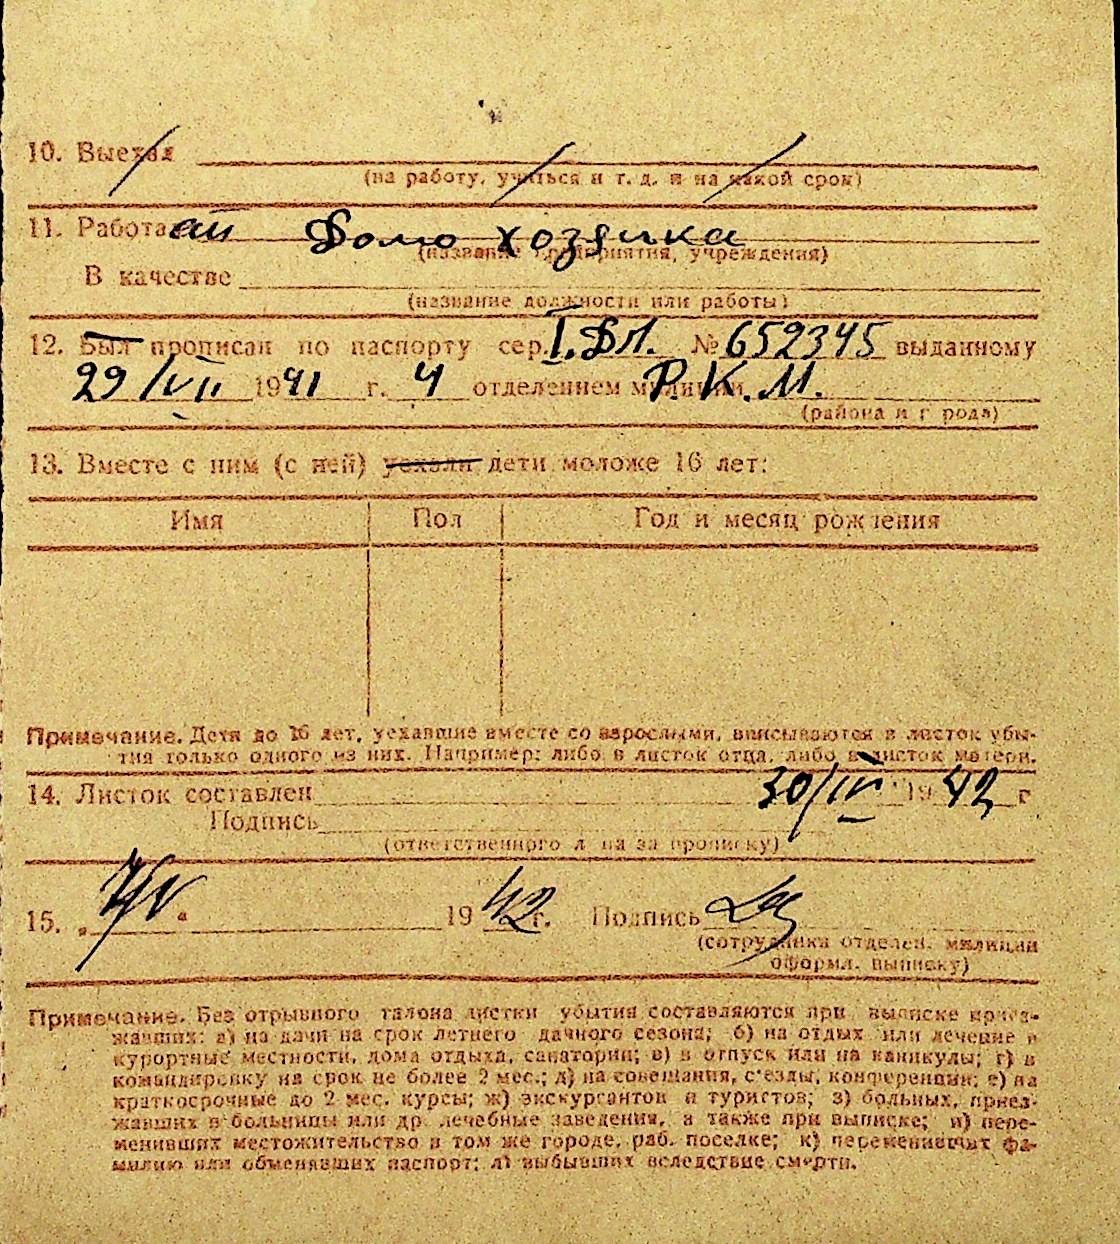 10. Выехал
(на работу, учиться и т. д. и на какой срок)
11. Работает Домо хозяйка
(название предприятия, учреждения)
В качестве
(название должности или работы)
12. Был прописан по паспорту сер. I.ДЛ. № 652345 выданному
29/VII 1941 г. 4 отделением милиции Р.К.М.
(района и города)
13. Вместе с ним (с ней) уехали дети моложе 16 лет:
Имя Пол Год и месяц рождения
Примечание. Дети до 16 лет, уехавшие вместе со взрослыми, вписываются в листок убы-
тия только одного из них. Например: либо в листок отца, либо в листок матери.
14. Листок составлен 30/IV 1942 г
Подпись
(ответственного лица за прописку)
15. 1942 г. Подпись
(сотрудника отделен. милиции
оформл. выписку)
Примечание. Без отрывного талона листки убытия составляются при выписке приез-
жавших: а) на дачи на срок летнего дачного сезона; б) на отдых или лечение в
курортные местности, дома отдыха, санатории; в) в отпуск или на каникулы; г) в
командировку на срок не более 2 мес.; д) на совещания, с'езды, конференции; е) на
краткосрочные до 2 мес. курсы; ж) экскурсантов и туристов; з) больных, приез-
жавших в больницы или др. лечебные заведения, а также при выписке; и) пере-
менивших местожительство в том же городе, раб. поселке; к) переменивших фа-
милию или обменявших паспорт; л) выбывших вследствие смерти.